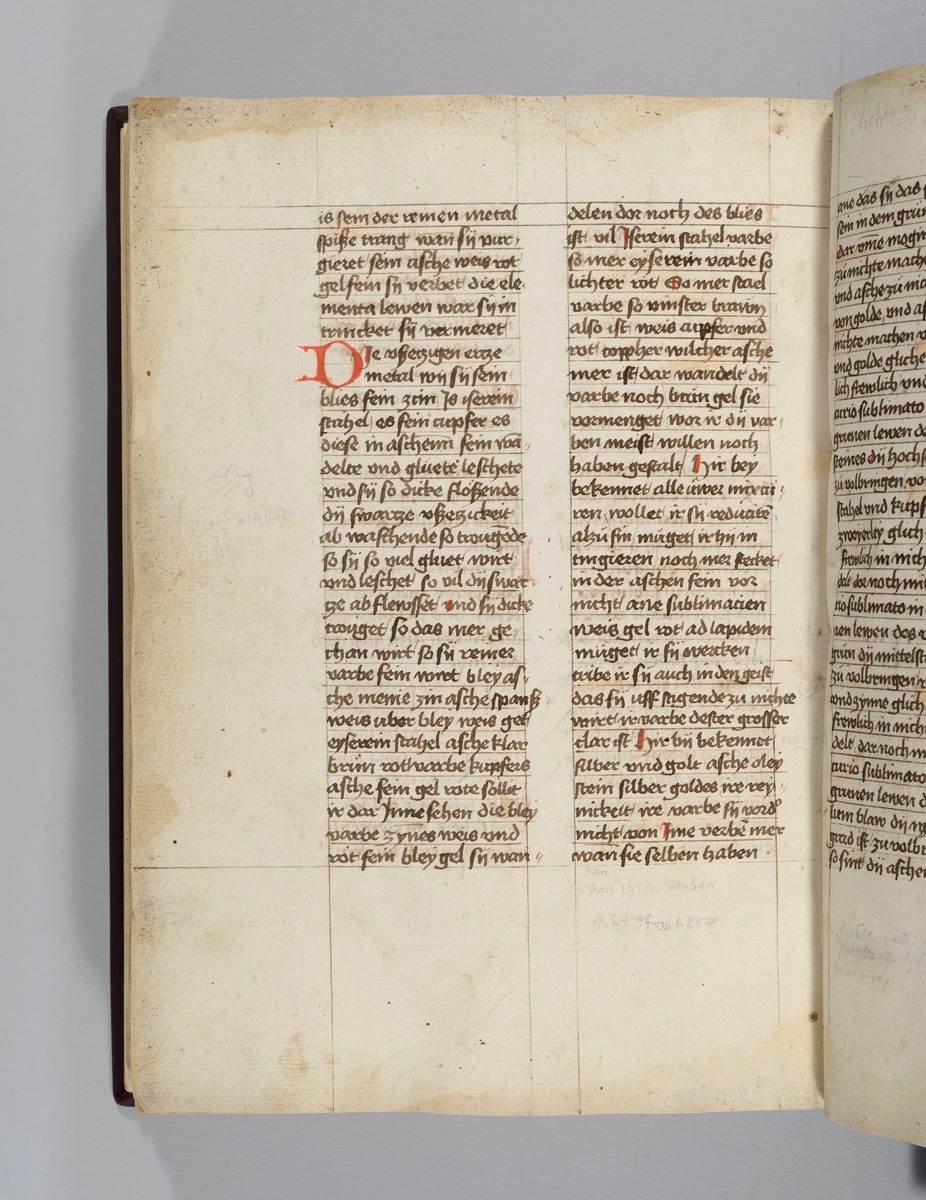 is sein der reinen metal
spiße trang wan sij vur-
gieret sein asche weis rot
gel sein sij verbet die ele
menta lewen war sij in
trincket sij vermeret
Die vßetzigen ertze
metal wij sij sein
blies sein zcin Is iserein
stahel es sein cupfer es
diese in aschem sein wā-
delte vnd gluete leschete
vnd sij so dicke floßende
dij swartze vßetzickeit
ab waschende so trougēde
so sij so viel gluet wirt
vnd leschet so vil dij swar
tze ab flewsset vnd sij dicke
trouget so das mer ge-
than wirt so sij reiner
varbe sein wirt bley as-
che menie zin asche spanß-
weis uber bley weis gel
eyserein stahel asche klar
brun rot varbe kupfers
asche sein gel rote sollit
ir dar Inne sehen die bley
varbe zynes weis vnd
rot sein bley gel sij wan-
delen dor noch des blies
ist vil Iserein stahel varbe
so mer eyserein varbe so
lichter rot So mer stael
varbe so vinster brawn
also ist weis cupfer vnd
rot coppher wilcher asche
mer ist dar wandelt dij
varbe noch brun gel sie
vormenget wor ir dij var-
ben meist willen noch
haben gestalt Hir bey
bekennet alle uwer mixtu-
ren wollet ir sij reducirē
alzu sin muget ir sij in
tingieren noch mer stecket
in der aschen sein vor
nicht ane sublimacien
weis gel rot ad lapidem
muget ir sij wercken
tribe ir sij auch in den geist
das sij uff stigende zu nichte
wirt ir varbe dester grosser
clar ist Hir bij bekennet
silber vnd golt asche oley
stein silber goldes ire rey-
nickeit ire varbe sij vorď
nicht von Ime verbē mer
wan sie selben haben
von ihren varben
ane das sij das
sein in dem grün
dar vme mogin
zu nichte mache
vnd asche zu nic
von golde vnd as
nichte machen v
vnd golde gliche
lich frewlich vnd
curio sublimato
grunen lewen de
steines dij hochs
zu volbringen vo
stahel vnd kupf
zwoyerley glich
frewlich in nich
delt dor noch mit
rio sublimato in
nen lewen des r
grun dij mittelst
zu volbringen
vnd zynne glich
frewlich in nich
delt dar noch m
curio sublimato
grunen lewen d
lium blaw dij
grad ist zu volbr
so sint dij aschen